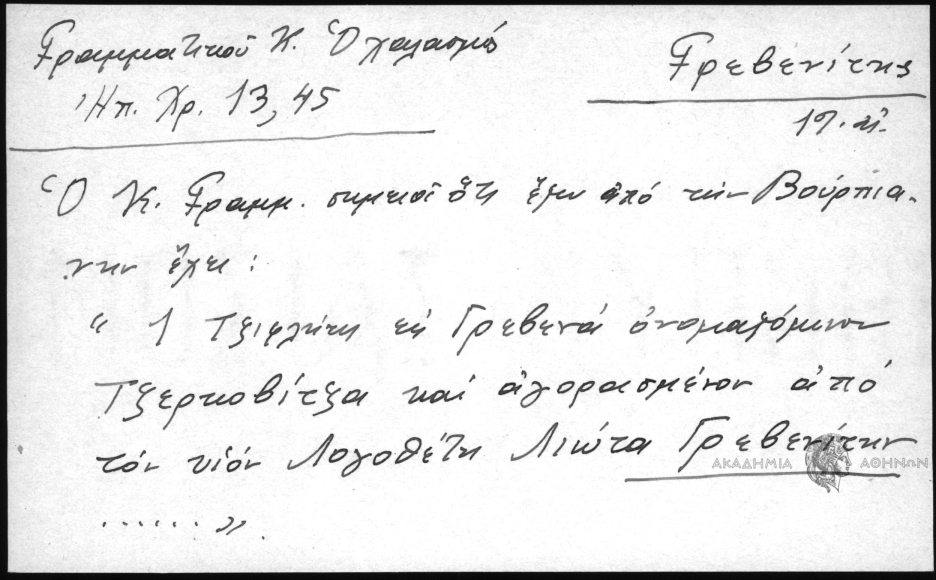 Γραμματικού Κ. Ὁ χαλασμός
Γρεβενίτης
Ἠπ. Χρ. 13, 45
19. αἰ.
Ὁ Κ. Γραμμ. σημειοῖ ὅτι ἔξω ἀπό τήν Βούρπια-
νην ἔχει:
" 1 Τζιφλίκι εἰς Γρεβενά ὀνομαζόμενον
Τζερκοβίτζα καί ἀγορασμένον ἀπό
τόν υἱόν Λογοθέτη Λιώτα Γρεβενίτην
ΑΚΑΔΗΜΙΑ ΑΘΗΝΩΝ
....... »